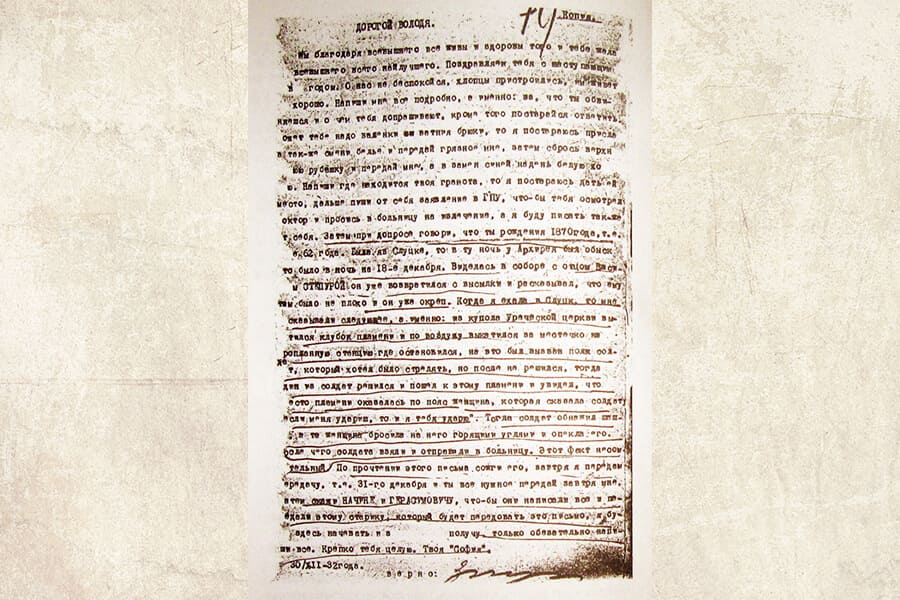 Копия.
ДОРОГОЙ ВОЛОДЯ.
Мы благодаря всевышнего все живы и здоровы того и тебе жела
всевышнего всего найлучшего. Поздравляем тебя с наступающим
годом. О нас не беспокойся, хлопцы пристроились, живут
хорошо. Напиши мне все подробно, а именно: за, что ты обви
няешся и о чем тебя допрашивают, кроме того постарайся ответить
тебе надо валенки ватная брюки, то я постараюсь присла
а так-же смени белье и передай грязное мне, затем сбрось верхн
юю рубашку и передай мне, а в замен синей надень белую
ю. Напиши где находится твоя грамота, то я постараюсь дать ей
место, дальше пиши от себя заявление в ГПУ, что-бы тебя осмотрел
октор и просись в больницу на излечение, а я буду писать так-же
т себя. Затем при допросе говори, что ты рождения 1870года, т.е.
62 года. Была я в Слуцке, то в ту ночь у Архирея был обыск
то было в ночь на 18-е декабря. Виделась в соборе с отцом Васи
м он уже возвратился с высылки и расказывал, что ему
там было не плохо и он уже окреп. Когда я ехала в Слуцк, то мне
сказывали следующее, а именно: из купола Уреческой церкви вы
тился клубок пламени и по воздуху выкатился за местечко на
ропланную станцию где остановился, на это был вызван полк сол-
дат, который хотел было стрелять, но после не решился, тогда
дин из солдат решился и пошел к этому пламени и увидел, что
есто пламени оказалась по пояс женщина, которая сказала солдату
если меня ударишь, то и я тебя ударю". Тогда солдат обнажил
а та женщина бросила на него горящими углями и опекла его.
осле чего солдата взяли и отправили в больницу. Этот факт несом
тельный. По прочтении этого письма сожги его, завтра я передам
ередачу, т.е. 31-го декабря и ты все нужное передай завтра мне,
атем скажи и ГЕРАСИМОВУЧУ, что-бы они написали все и пе
едали этому старику, который будет передавать это письмо, я бу
здесь начевать и в получу, только обязательно напи
ши все. Крепко тебя целую. Твоя "София".
30/XII-32года.
верно: